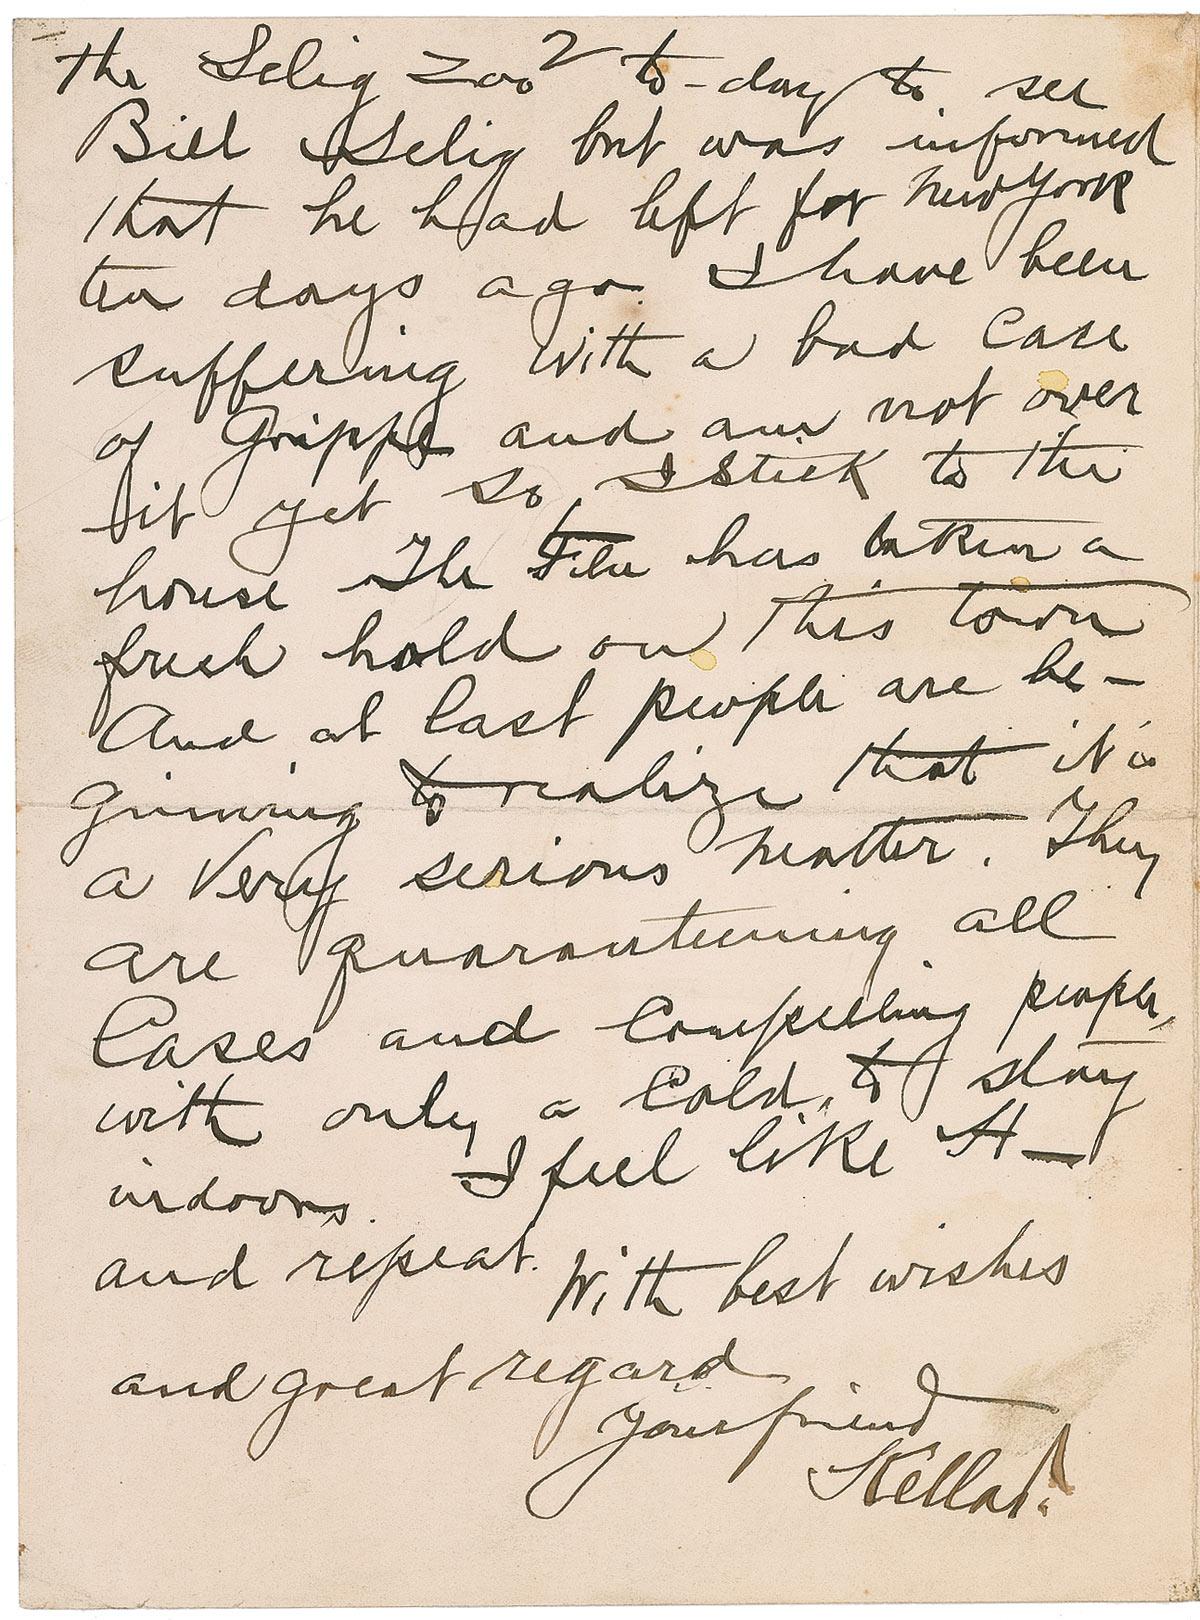 the Selig Zoo 2 to-day to see
Bill Selig but was informed
that he had left for New York
ten days ago. I have been
suffering with a bad case
of Grippe and am not over
it yet so I stick to the
house The Flu has taken a
fresh hold on this town
And at last people are be-
ginning to realize that it is
a very serious matter. They
are quaranteening all
Cases and Compelling people,
with only a Cold, to stay
indoors. I feel like H—
and repeat. With best wishes
and great regard
Your friend
Kellar!